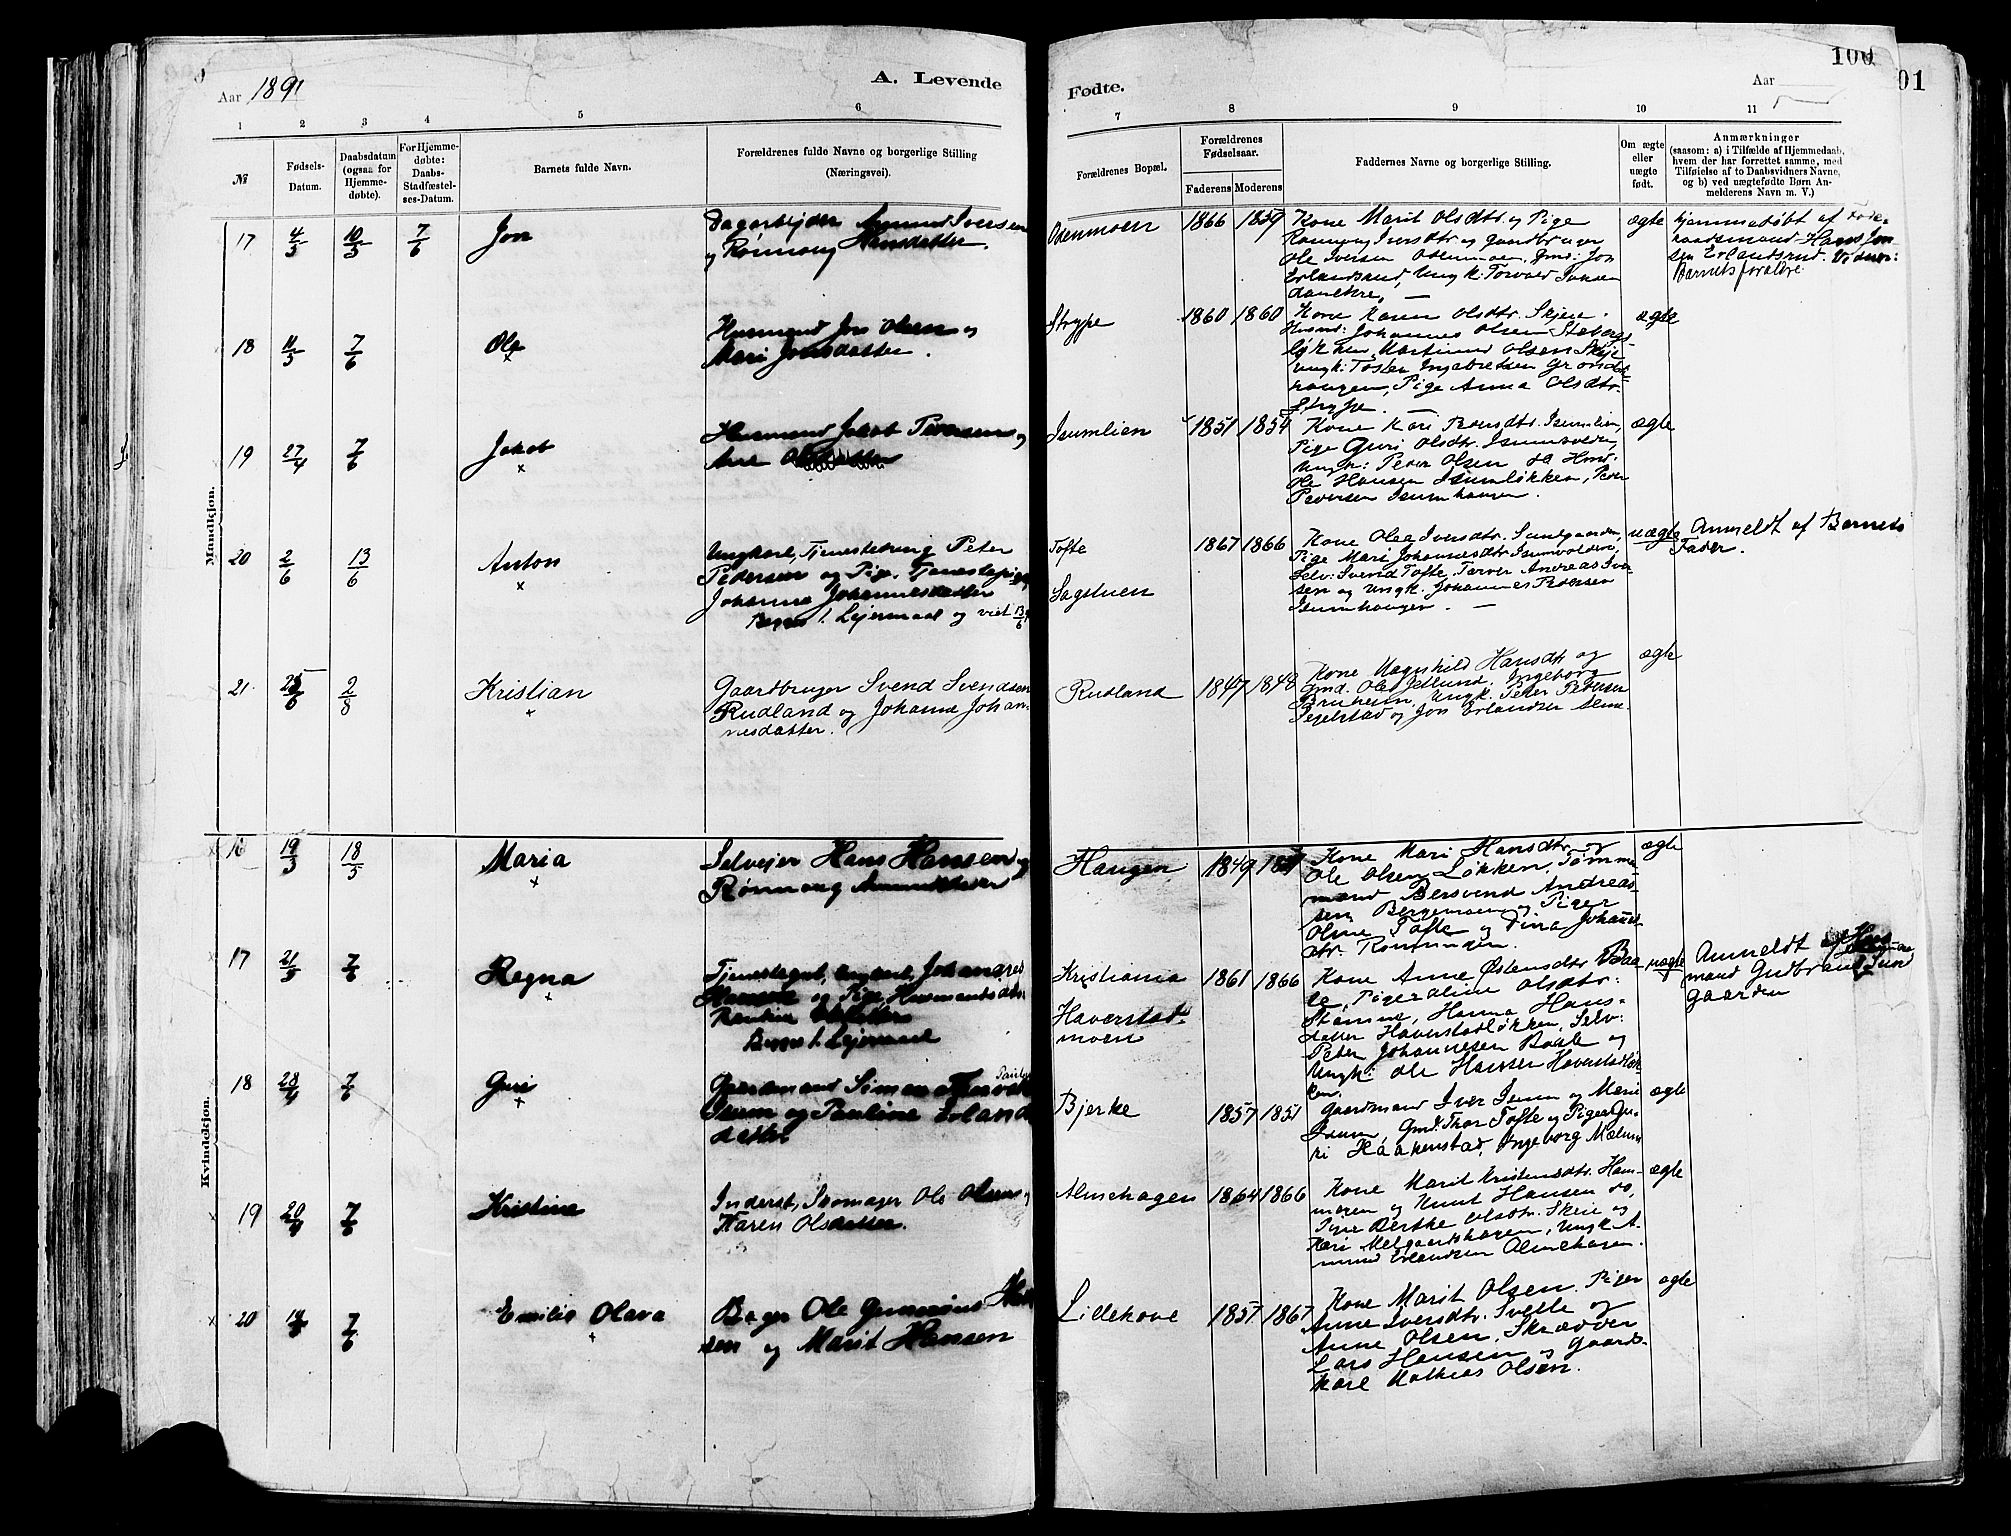 Aar 1891
A. Levende
Fødte.
Aar
100
01
1 2 3 4 5 6 7 8 9 10 11
№
Fødsels-
Datum.
Daabsdatum
(ogsaa for
Hjemme-
døbte).
For Hjemme-
døbte:
Daabs-
Stadfæstel-
ses-Datum.
Barnets fulde Navn.
Forældrenes fulde Navne og borgerlige Stilling
(Næringsvei).
Forældrenes Bopæl.
Forældrenes
Fødselsaar.
Faderens Moderens
Faddernes Navne og borgerlige Stilling.
Om ægte
eller
uægte
født.
Anmærkninger
(saasom: a) i Tilfælde af Hjemmedaab,
hvem der har forrettet samme, med
Tilføielse af to Daabsvidners Navne,
og b) ved uægtefødte Børn An-
melderens Navn m. V.)
Mandkjøn.
17 4/5 10/5 7/6 Jon
Dagarbeider Amund Iversen
og Rønnaug Hansdatter.
Odenmoen 1866 1859
Kone Marit Olsdtr. og Pige
Rønnaug Iversdtr. og Gaardbruger
Ole Iversen Odenmoen, Gmd: Jon
Erlandsrud, Ungk: Torvald
ægte
hjemmedøbt af
Hans Jon-
sen Erlandsrud. Vidner:
Barnets forældre.
18 11/5 7/6 Ole
Husmand Jon Olsen og
Mari Jonsdatter.
Strype 1860 1860
Kone Karen Olsdtr. Skjeie.
Husmd: Johannes Olsen Steberg-
løkken, Martinus Olsen Skjeie
Ungk: Tosten Ingebretsen
haugen, Pige Anna Olsdtr.
Strype.
ægte
19 27/4 7/6 Jakob
Husmand Jakob Pedersen og
Ane
Isumlien 1851 1854
Kone Kari Isumlien,
Pige Guri Olsdtr. Isumvolden,
Ungk: Peter Olsen do Hmd:
Ole Hansen Isumløkken, Peder
Pedersen Isumhaugen.
ægte
20 2/6 13/6 Anton
Ungkarl, Tjenestedreng Peter
Pedersen og Pige, Tjenestepige
Johanne Johannesdatter
Begges 1. Leiermaal og viet 13/6
Tofte
Sagstuen
1867 1866
Kone Olea Iversdtr. Sundgaarden,
Pige Mari Johannesdtr. Isumvolden,
Selv: Svend Tofte, Farver Andreas Iver-
sen og Ungk. Johannes Pedersen
Isumhaugen.
uægte
Anmeldt af Barnets
Fader.
21. 25/6 2/8 Kristian
Gaardbruger Svend Svendsen
Rudland og Johanne Johan-
nesdatter.
Rudland 1847 1848
Kone Ragnhild Hansdtr. og
Gmd. Ole Jetlund, Ingeborg
Bruheim, Ungk. Peter Pedersen
og Jon Erlandsen
ægte
Kvindekjøn.
16 19/3 18/5 Maria
Selveier Hans Hansen og
Rønnaug Amundsdatter
Haugen 1849
Kone Mari Hansdtr. og
Ole Olsen Løkken, Tømmer-
mand Bersvend Andreas-
sen Bergemoen og Piger
Oline Tofte og Dina Johannes-
dtr. Rønningen.
ægte
17 21/3 7/6 Regna
Johannes
Hansen og Pige, Husmandsdatter
Begges 1. Leiermaal
Kristiania
Haverstad-
moen
1861 1866
Kone Anne Østensdtr. Baa-
le, Piger Oline Olsdtr.
Stamme, Hanna Hans-
datter Haverstadløkken, Selv:
Peter Johannesen Baale og
Ungk: Ole Hansen Haverstadløk-
ken.
uægte
Anmeldt af Hus-
mand Gudbrand Sund-
gaarden
18 28/4 7/6 Guri
Gaardmand Simen
Isum og Pauline Erlands-
datter
Bjerke 1857 1851
Gaardmand Iver Isum og Marie
Isum, Gmd: Thor Tofte og Piger Gu-
ri Kaakenstad, Ingeborg Mælum
ægte
19 20/4 7/6 Kristine
Inderst, Skomager Ole Olsen og
Karen Olsdatter.
Almehagen 1864 1866
Kone Marit Kristensdtr. Ham-
moren og Knut Hansen do,
Piger Berthe Olsdtr. Skeie og
Kari Melgaardshagen, Ungk. A-
mund Erlandsen Almehagen.
ægte
20 7/6 Emilie Olava
Bager Ole Gunerius Han-
sen og Marit Hansen
Lillehove 1857 1867
Kone Marit Olsen. Piger
Anne Iversdtr. Svelle og
Anne Olsen, Skrædder
Lars Hansen og Gaard-
karl Mathias Olsen.
ægte